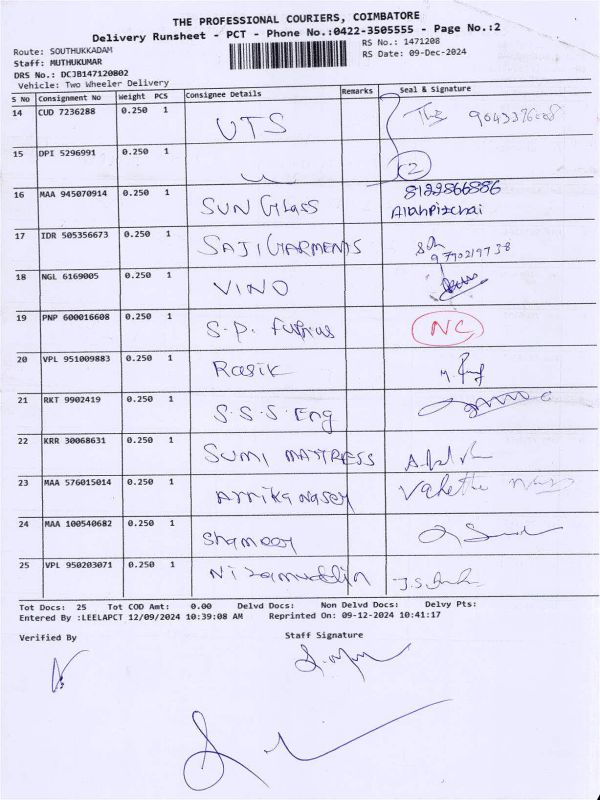 THE PROFESSIONAL COURIERS, COIMBATORE
Delivery Runsheet - PCT - Phone No.:0422-3505555 - Page No.:2
Route: SOUTHUKKADAM
RS No.: 1471208
Staff: MUTHUKUMAR
RS Date: 09-Dec-2024
DRS No.: DCJB147120802
Vehicle: Two Wheeler Delivery
S No Consignment No Weight PCS Consignee Details Remarks Seal & Signature
14 CUD 7236288 0.250 1 UTS
15 DPI 5296991 0.250 1 2
16 MAA 945070914 0.250 1 SUN Glass 8122866886
17 IDR 505356673 0.250 1 SAJI GARMENTS 9790219738
18 NGL 6169005 0.250 1 VINO
19 PNP 600016608 0.250 1 S.P. NC
20 VPL 951009883 0.250 1 Rasik
21 RKT 9902419 0.250 1 S.S.S. Eng
22 KRR 30068631 0.250 1 SUMI MATTRESS
23 MAA 576015014 0.250 1
24 MAA 100540682 0.250 1
25 VPL 950203071 0.250 1 Nizamuddin
Tot Docs: 25 Tot COD Amt: 0.00 Delvd Docs: Non Delvd Docs: Delvy Pts:
Entered By :LEELAPCT 12/09/2024 10:39:08 AM Reprinted On: 09-12-2024 10:41:17
Verified By Staff Signature